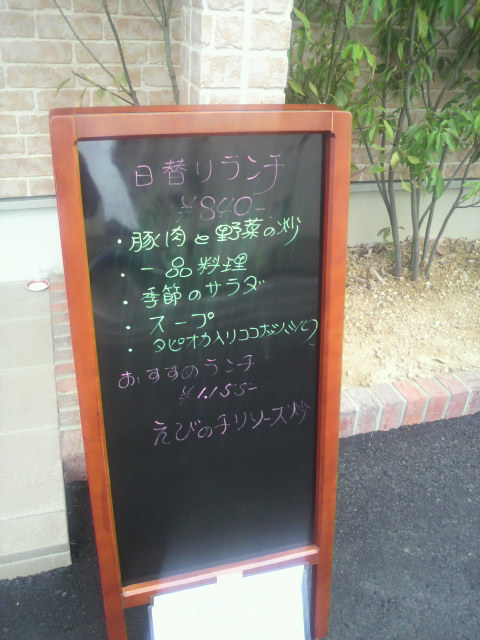 日替りランチ
¥840-
・豚肉と野菜の炒
・一品料理
・季節のサラダ
・スープ
・タピオカ入りココナッツミルク
おすすめランチ
¥1,155-
えびのチリソース炒